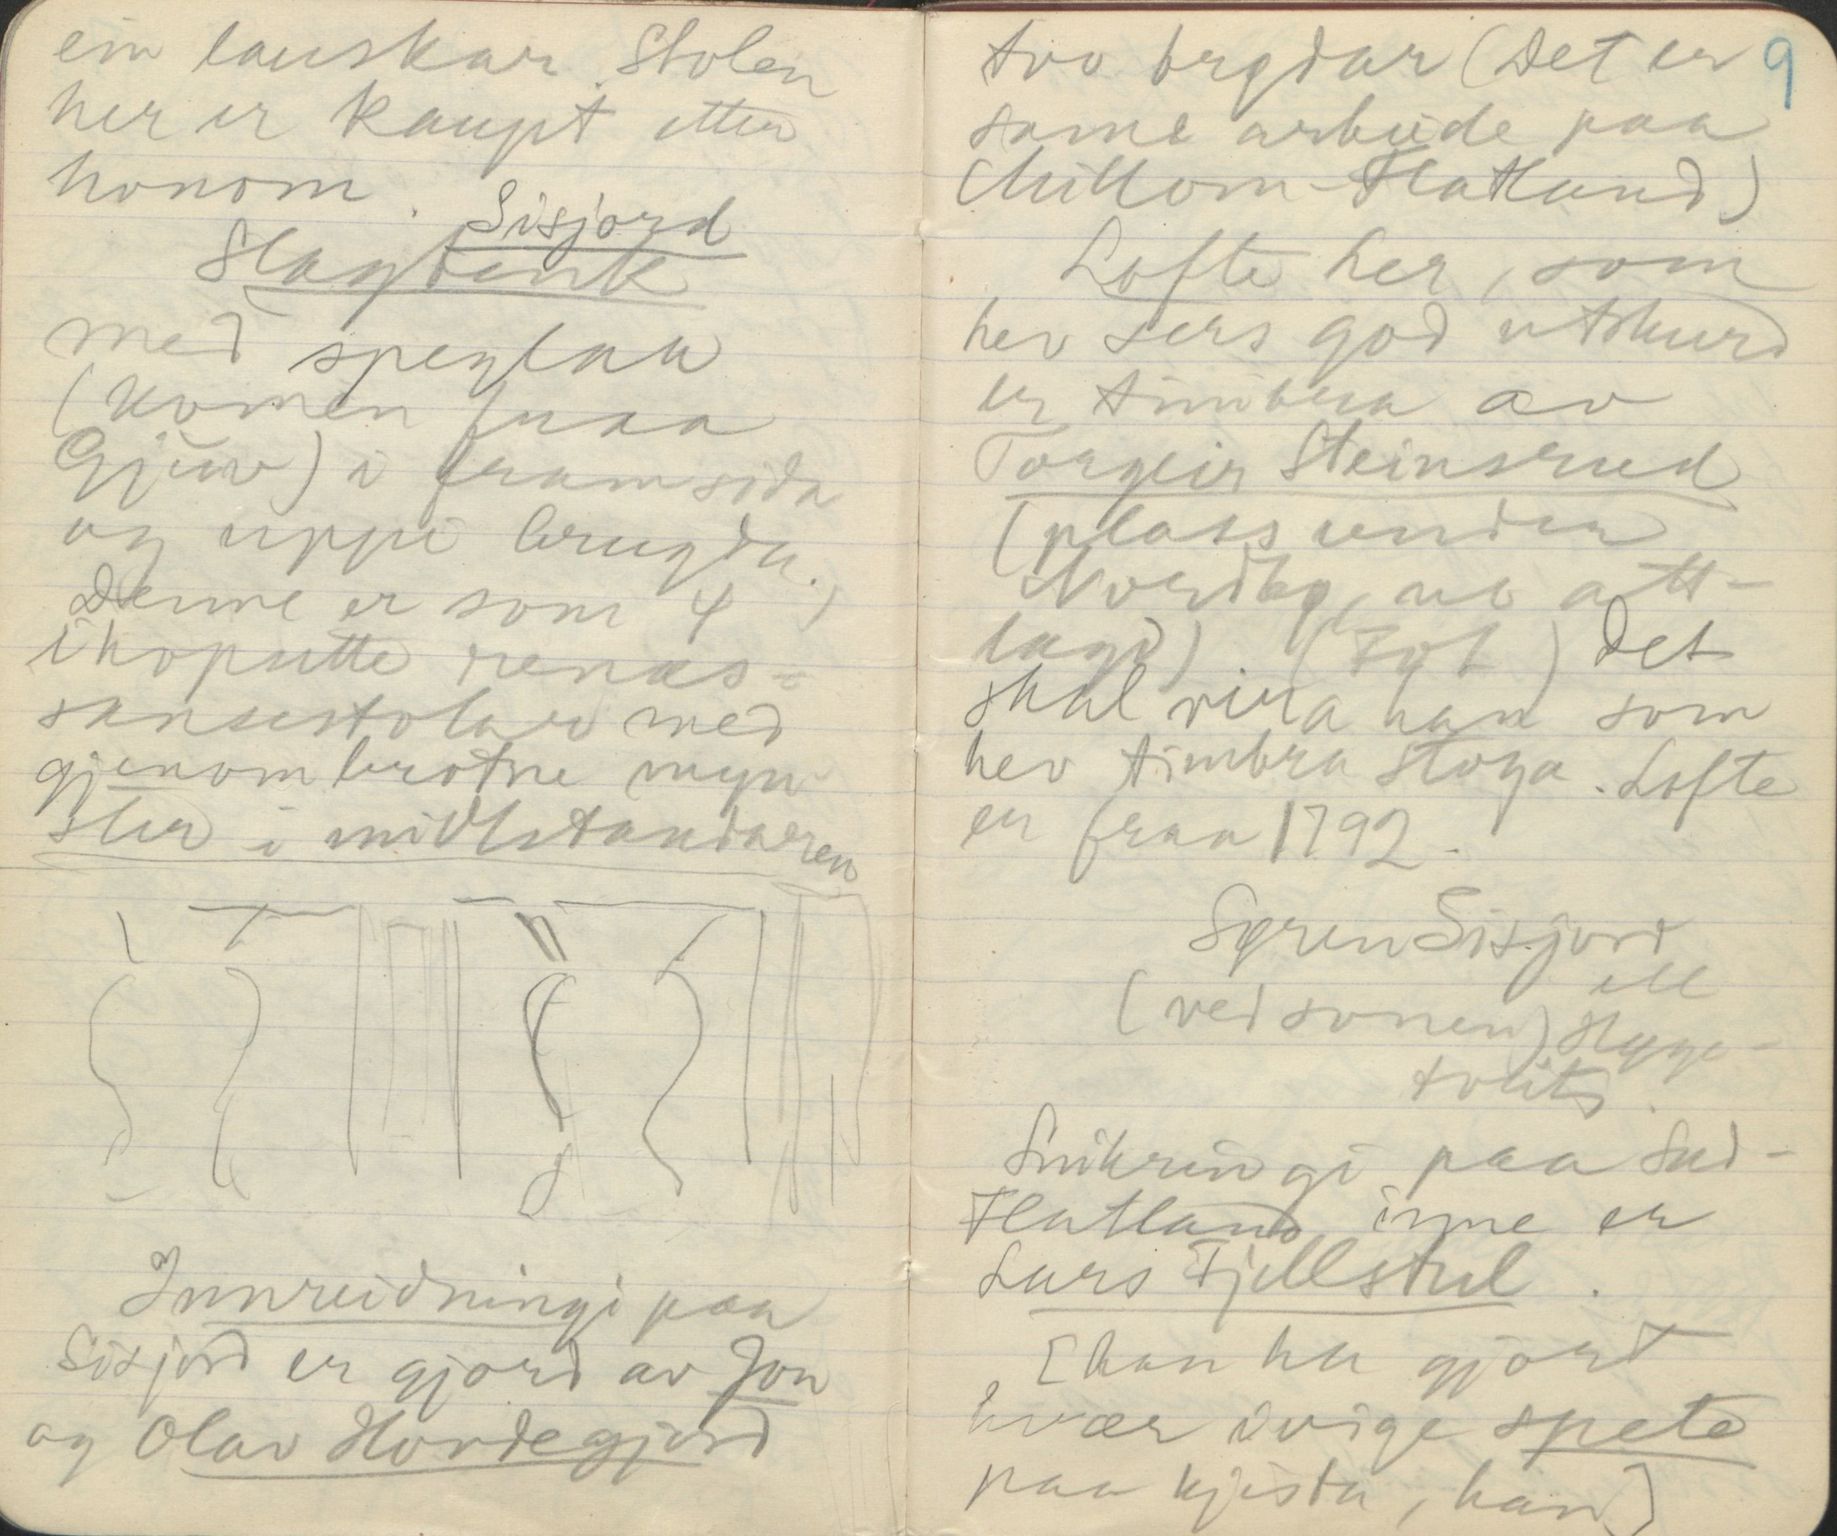 ein lauskar. Stolen
her er kaupt etter
honom.
Sisjord
Slagbenk
med speglar
(komen fraa
Gjuv) i framsida
og uppi brugda.
Denne er som 4
ihopsette renes-
sansestolar med
gjenombrotne myn-
ster i midtstandaren
Innreidningi paa
Sisjord er gjord av Jon
og Olav Hovdegjord
9
tvo brgdar (Det er
same arbeide paa
Millom-Flatland)
Lofte her, som
hev sers god utskurd
er timbra av
Torgeir Steinsrud
(plass under
Nordbø, no att-
lagd). Det
skal vera han som
hev timbra stoga. Lofte
er fraa 1792.
Søren Sisjord
ell
(ved sonen) Hygge-
tveits.
Snikringi paa Sud-
Flatland inne er
Lars Fjellstul.
[han ha gjort
hvær ivige spete
paa kjista, han]